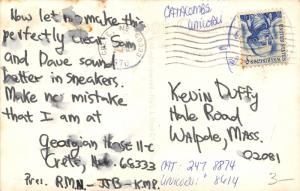 Now let me make this
perfectly clear Sam
and Dave sound
better in sneakers.
Make no mistake
that I am at
Georgian House 11-C
Crete, Neb 68333
Pres. R.M.N.- JJB - K.M.P.
CATACOMBS
UNICORN
Kevin Duffy
Hale Road
Walpole, Mass.
02081
CAT: 247 8874
UNICORN: 8414
3-